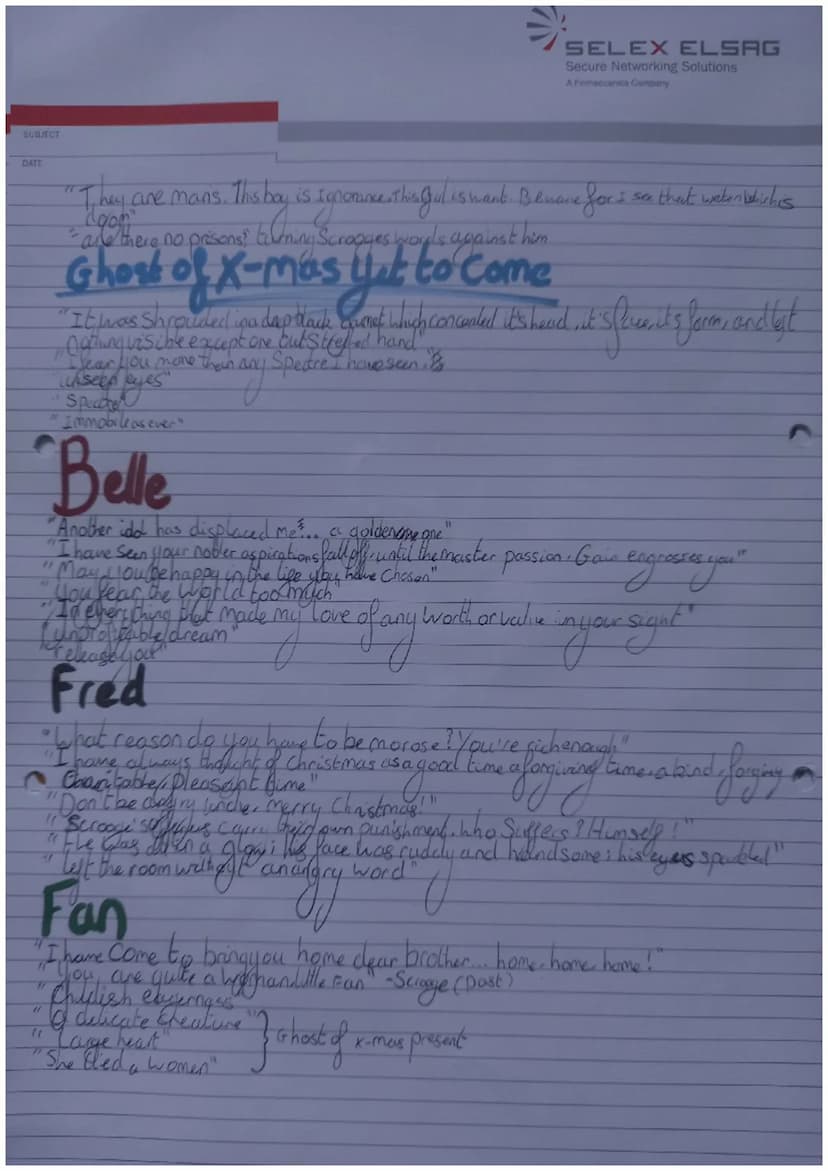 SELEX ELSAG
Secure Networking Solutions
A Finmeccanica Company
SUBJECT
DATE
"They are mans. This boy is Ignorance. This Girl is want. Beware for I see that which is
doom"
"are there no prisons?" turning Scrooges words against him
Ghost of X-mas yet to Come
"It was Shrouded in a deep black garment which concealed it's head, it's face, its form, and left
nothing visible except one outstretched hand"
"I fear you more than any Spectre I have seen."
"unseen eyes"
"Spectre"
"Immobile as ever"
Belle
"Another idol has displaced me... a golden one"
"I have seen your nobler aspirations fall off, until the master passion. Gain engrosses you"
"May you be happy in the life you have Chosen"
"You fear the World too much"
"everything that made my love of any worth or value in your sight"
"unprofitable dream"
"release you"
Fred
"What reason do you have to be morose? You're rich enough"
"I have always thought of Christmas as a good time a forgiving time, a kind, forging
Charitable, Pleasant time"
"Don't be angry uncle, merry Christmas!"
"Scrooge's carry their own punishment. Who Suffers? Himself!"
"He was all in a glow; his face was ruddy and handsome; his eyes sparkled"
"left the room without an angry word"
Fan
"I have Come to bring you home dear brother... home, home, home!"
"You are quite a woman little Fan" - Scrooge (Past)
"Childish eagerness"
"A delicate Creature"
"Large heart"
Ghost of x-mas present
"She died a women"